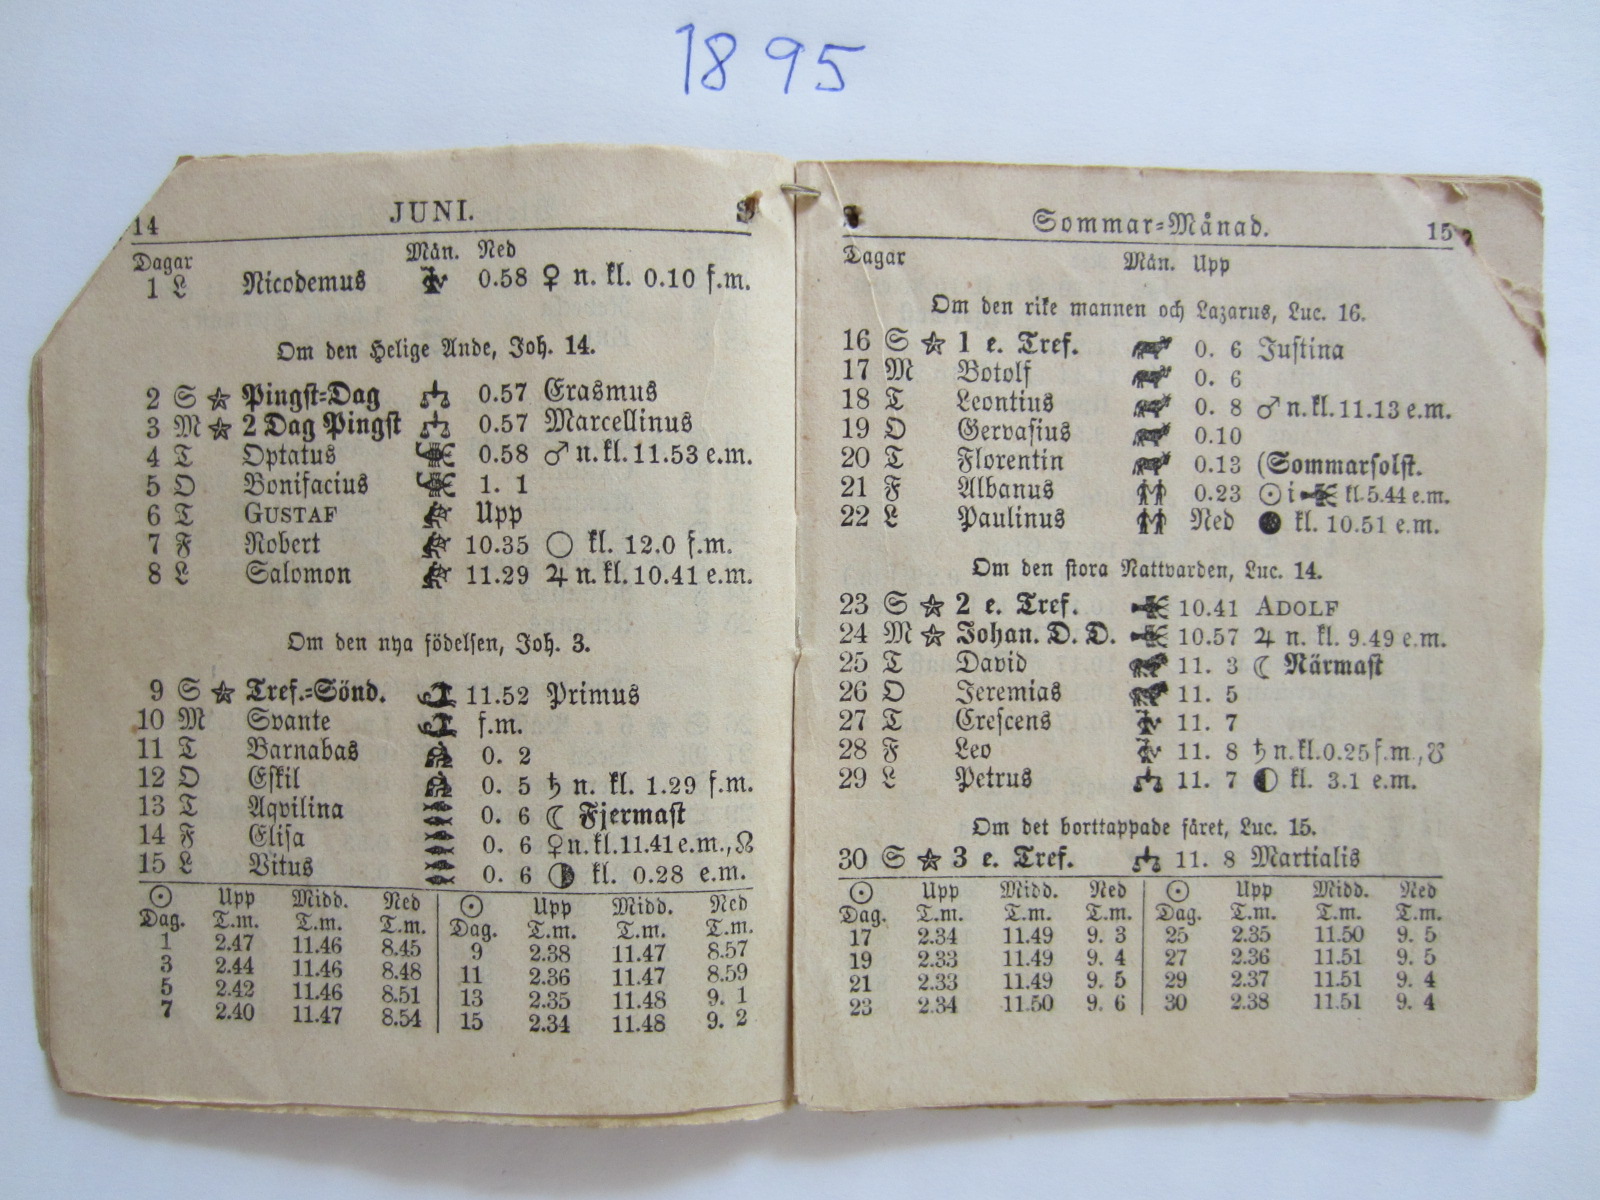 1895
14 JUNI.
Dagar Mån. Ned
1 L Nicodemus 0.58 ♀ n. kl. 0.10 f.m.
Om den Helige Ande, Joh. 14.
2 S ☆ Pingst-Dag 0.57 Erasmus
3 M ☆ 2 Dag Pingst 0.57 Marcellinus
4 T Optatus 0.58 ♂ n. kl. 11.53 e.m.
5 O Bonifacius 1. 1
6 T GUSTAF Upp
7 F Robert 10.35 ○ kl. 12.0 f.m.
8 L Salomon 11.29 ♃ n. kl. 10.41 e.m.
Om den nya födelsen, Joh. 3.
9 S ☆ Tref.-Sönd. 11.52 Primus
10 M Svante f.m.
11 T Barnabas 0. 2
12 O Eskil 0. 5 ♄ n. kl. 1.29 f.m.
13 T Aqvilina 0. 6 ☾ Fjermast
14 F Elisa 0. 6 ♀ n. kl. 11.41 e.m., ☊
15 L Vitus 0. 6 ◑ kl. 0.28 e.m.
☉ Upp Midd. Ned ☉ Upp Midd. Ned
Dag. T.m. T.m. T.m. Dag. T.m. T.m. T.m.
1 2.47 11.46 8.45 9 2.38 11.47 8.57
3 2.44 11.46 8.48 11 2.36 11.47 8.59
5 2.42 11.46 8.51 13 2.35 11.48 9. 1
7 2.40 11.47 8.54 15 2.34 11.48 9. 2
Sommar-Månad. 15
Dagar Mån. Upp
Om den rike mannen och Lazarus, Luc. 16.
16 S ☆ 1 e. Tref. 0. 6 Justina
17 M Botolf 0. 6
18 T Leontius 0. 8 ♂ n. kl. 11.13 e.m.
19 O Gervasius 0.10
20 T Florentin 0.13 (Sommarsolst.
21 F Albanus 0.23 ☉ i ♋ kl. 5.44 e.m.
22 L Paulinus Ned ● kl. 10.51 e.m.
Om den stora Nattvarden, Luc. 14.
23 S ☆ 2 e. Tref. 10.41 ADOLF
24 M ☆ Johan. D. D. 10.57 ♃ n. kl. 9.49 e.m.
25 T David 11. 3 ☾ Närmast
26 O Jeremias 11. 5
27 T Crescens 11. 7
28 F Leo 11. 8 ♄ n. kl. 0.25 f.m., ☋
29 L Petrus 11. 7 ◐ kl. 3.1 e.m.
Om det borttappade fåret, Luc. 15.
30 S ☆ 3 e. Tref. 11. 8 Martialis
☉ Upp Midd. Ned ☉ Upp Midd. Ned
Dag. T.m. T.m. T.m. Dag. T.m. T.m. T.m.
17 2.34 11.49 9. 3 25 2.35 11.50 9. 5
19 2.33 11.49 9. 4 27 2.36 11.51 9. 5
21 2.33 11.49 9. 5 29 2.37 11.51 9. 4
23 2.34 11.50 9. 6 30 2.38 11.51 9. 4